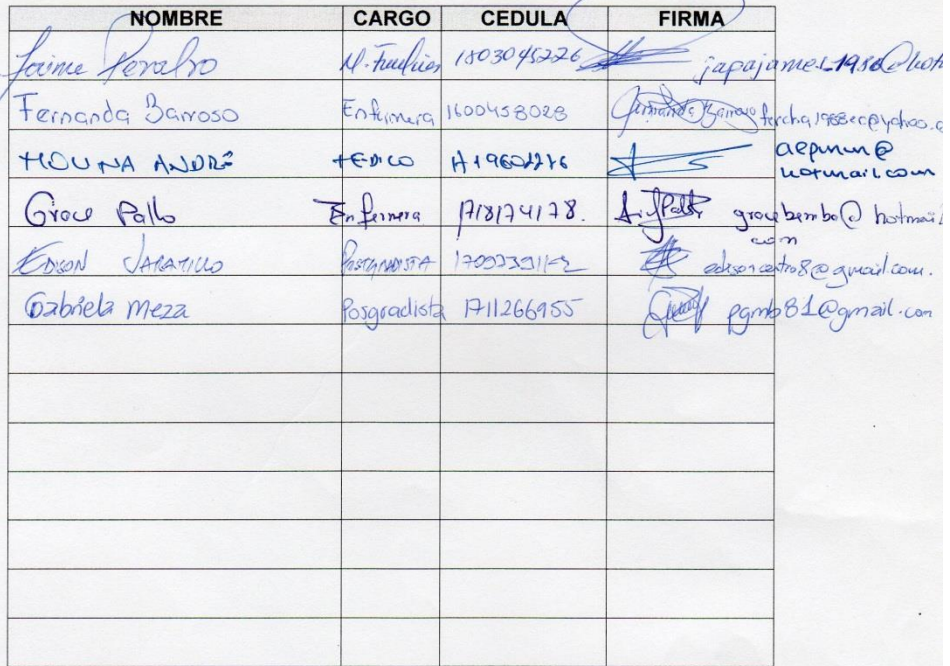 NOMBRE CARGO CEDULA FIRMA
Jaime 1803045226 japajames1980@hot
Fernanda Barroso Enfermera 1600458028 Fernanda Barroso fercha1988ec@yahoo.
MOLINA ANDRÉ MEDICO @hotmail.com
Grace Pallo Enfermera 1718174178. gracebembo@hotmail.
com
EDISON JARAMILLO POSTGRADISTA edisoncastro8@gmail.com.
Gabriela Meza Posgradista 1711266955 pgmb81@gmail.com